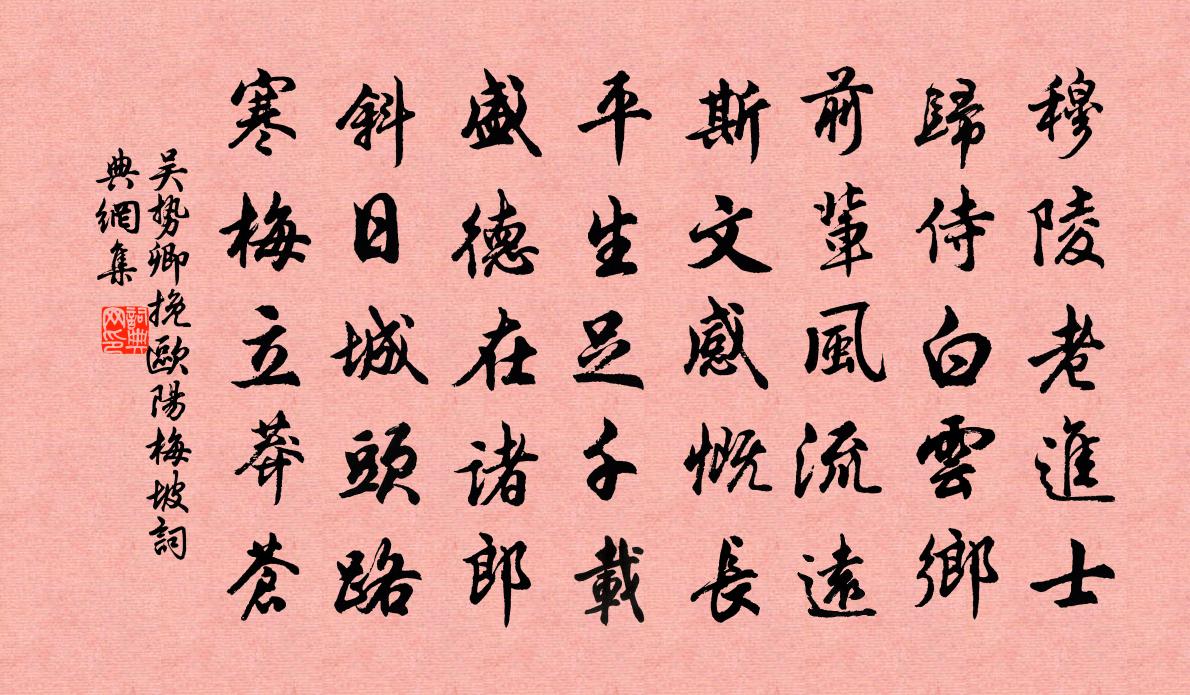 穆陵老進士
歸侍白雲鄉
前輩風流遠
斯文感慨長
平生足千載
盛德在諸郎
斜日城頭路
寒梅立莽蒼
吴勢卿挽歐陽梅坡詞
典網集
詞典
网印